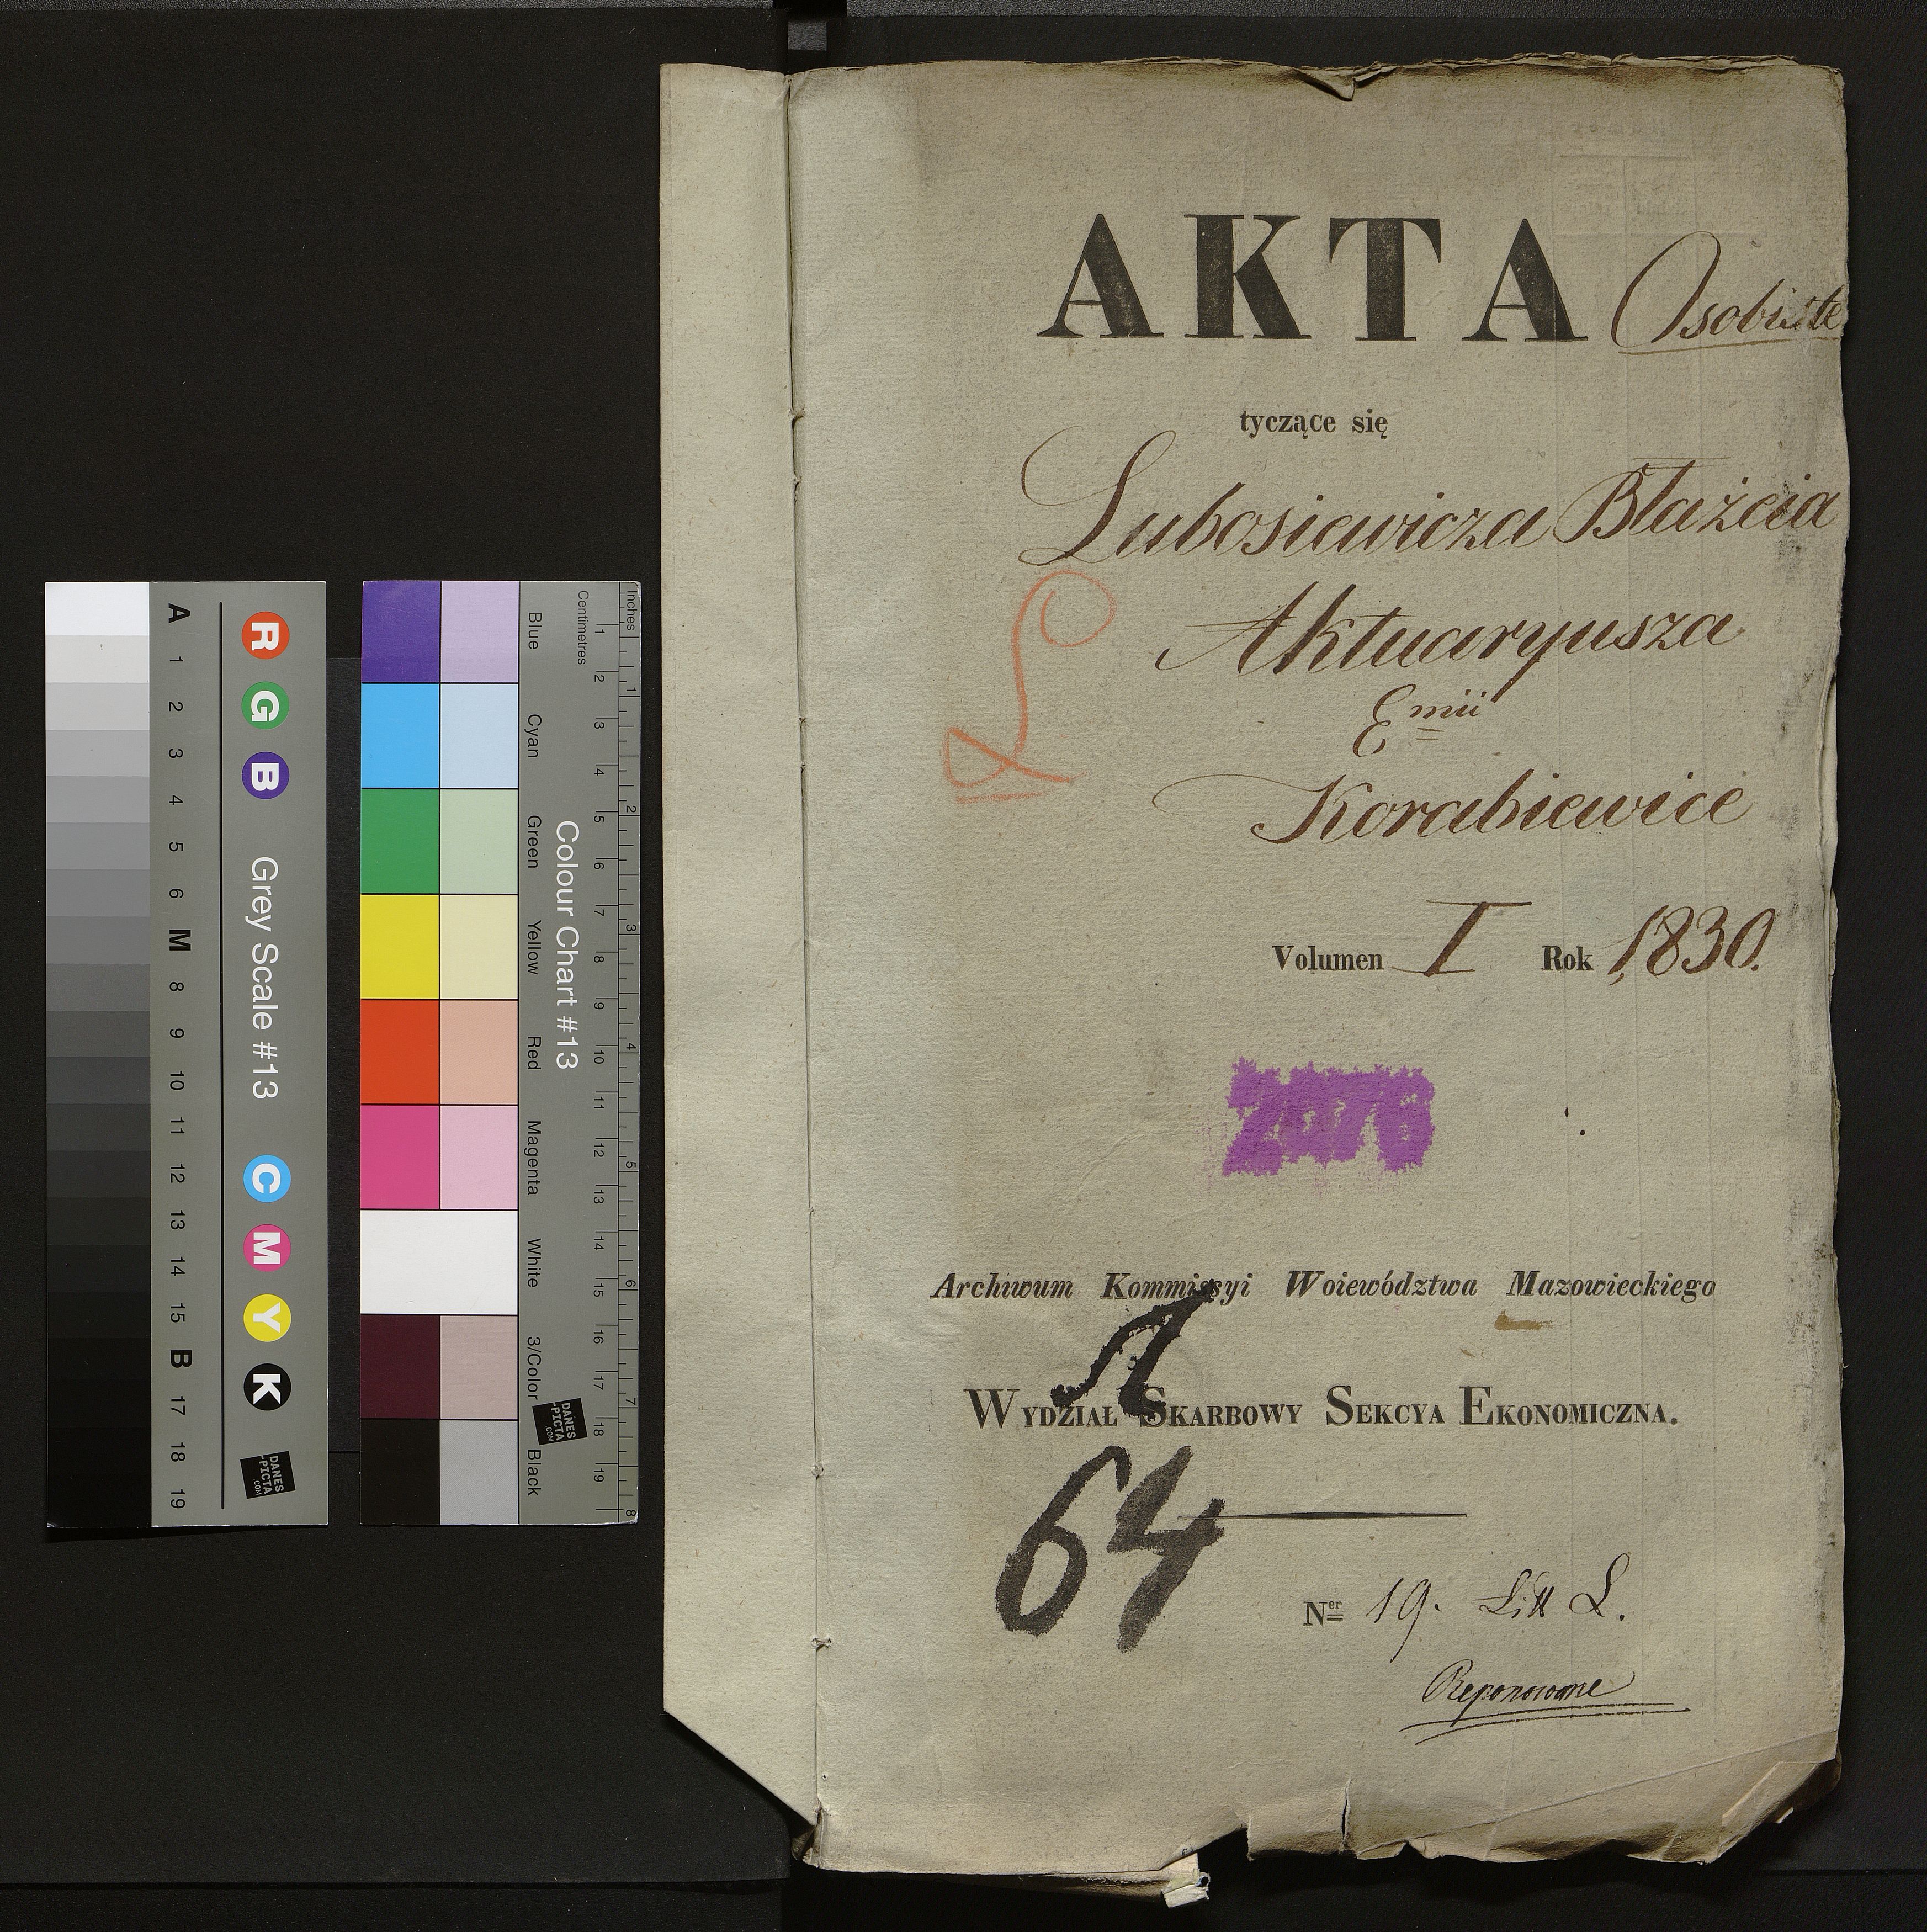 AKTA Osobiste
tyczące się
Lubosiewicza Błażeia
Aktuaryusza
Emii
Korabiewice
Volumen I Rok 1830.
2076
Archiwum Kommissyi Woiewództwa Mazowieckiego
Л
WYDZIAŁ SKARBOWY SEKCYA EKONOMICZNA.
64
Ner 19. Litt L.
Reponowane
L
A 1 2 3 4 5 6 M 8 9 10 11 12 13 14 15 B 17 18 19
R G B Grey Scale #13 C M Y K
DANES
-PICTA
.COM
Blue Cyan Green Yellow Red Magenta White 3/Color Black
Colour Chart #13
DANES
-PICTA
.COM
Centimetres 1 2 3 4 5 6 7 8 9 10 11 12 13 14 15 16 17 18 19
Inches 1 2 3 4 5 6 7 8